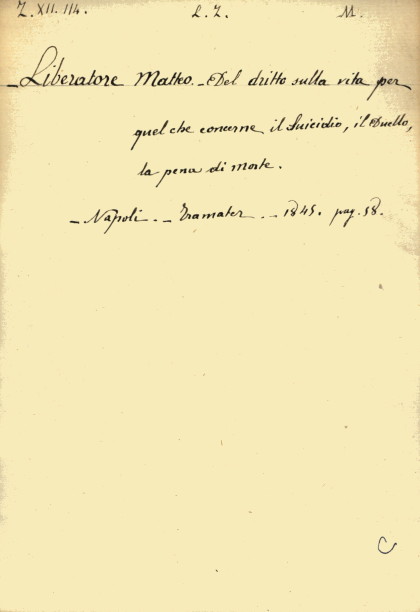 Z. XII. 114. L. Z. M.
_Liberatore Matteo._Del dritto sulla vita per
quel che concerne il Suicidio, il Duello,
la pena di morte.
_ Napoli._ _Tramater_ _ 1845. pag. 58.
C